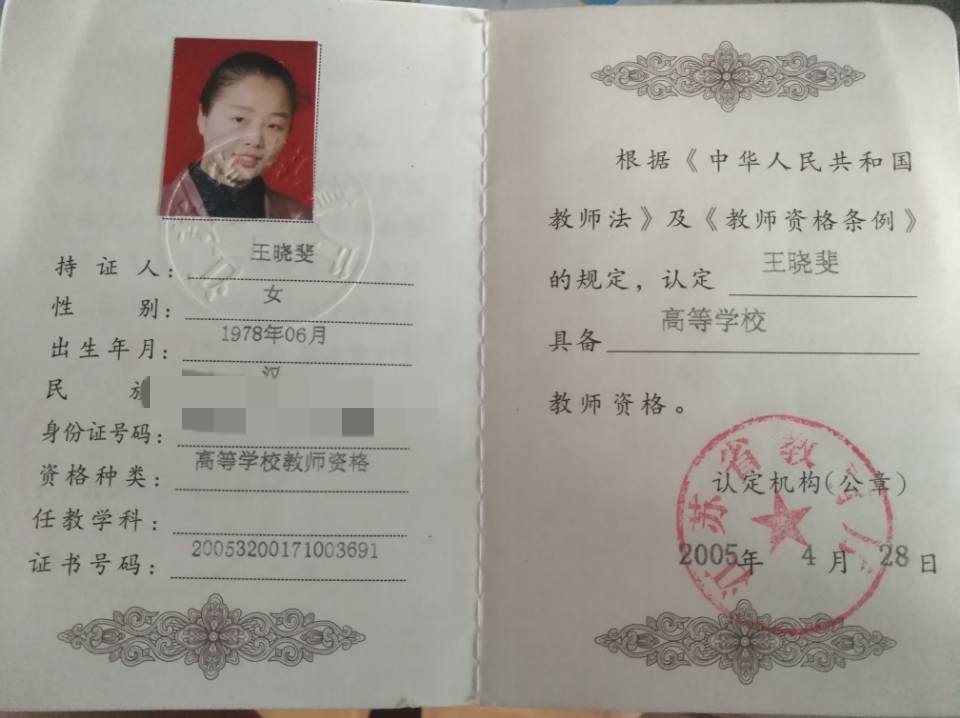 持证人：王晓斐
性别：女
出生年月：1978年06月
民族 汉
身份证号码：
资格种类：高等学校教师资格
任教学科：
证书号码：20053200171003691
根据《中华人民共和国
教师法》及《教师资格条例》
的规定，认定 王晓斐
具备 高等学校
教师资格。
江苏省教育厅
认定机构(公章)
2005年 4 月 28 日